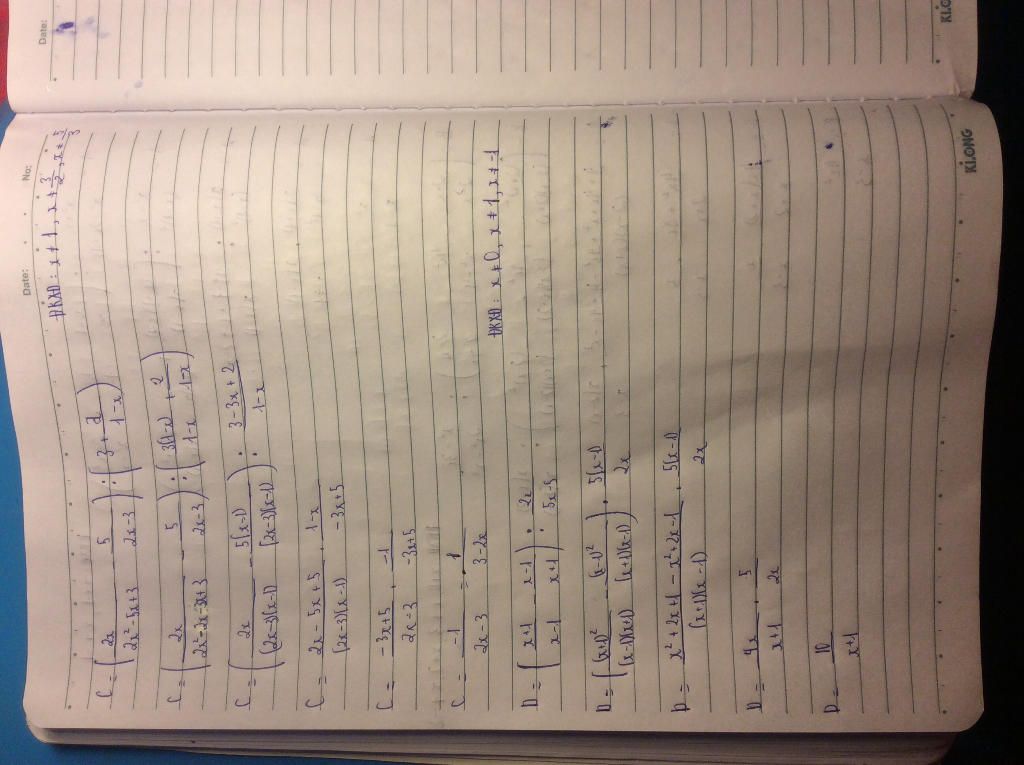 Date:
No:
Date:
ĐKXĐ: x ≠ 1, x ≠ 3/2, x ≠ 5/3
C = (2x/(2x²-5x+3) - 5/(2x-3)) : (3 + 2/(1-x))
C = (2x/(2x²-2x-3x+3) - 5/(2x-3)) : (3(1-x)/(1-x) + 2/(1-x))
C = (2x/((2x-3)(x-1)) - 5(x-1)/((2x-3)(x-1))) : (3-3x+2)/(1-x)
C = (2x-5x+5)/((2x-3)(x-1)) . (1-x)/(-3x+5)
C = (-3x+5)/(2x-3) . (-1)/(-3x+5)
C = -1/(2x-3) = 1/(3-2x)
ĐKXĐ: x ≠ 0, x ≠ 1, x ≠ -1
D = ((x+1)/(x-1) - (x-1)/(x+1)) : 2x/(5x-5)
D = ((x+1)²/((x-1)(x+1)) - (x-1)²/((x+1)(x-1))) . 5(x-1)/2x
D = (x²+2x+1-x²+2x-1)/((x+1)(x-1)) . 5(x-1)/2x
D = 4x/(x+1) . 5/2x
D = 10/(x+1)
KLONG